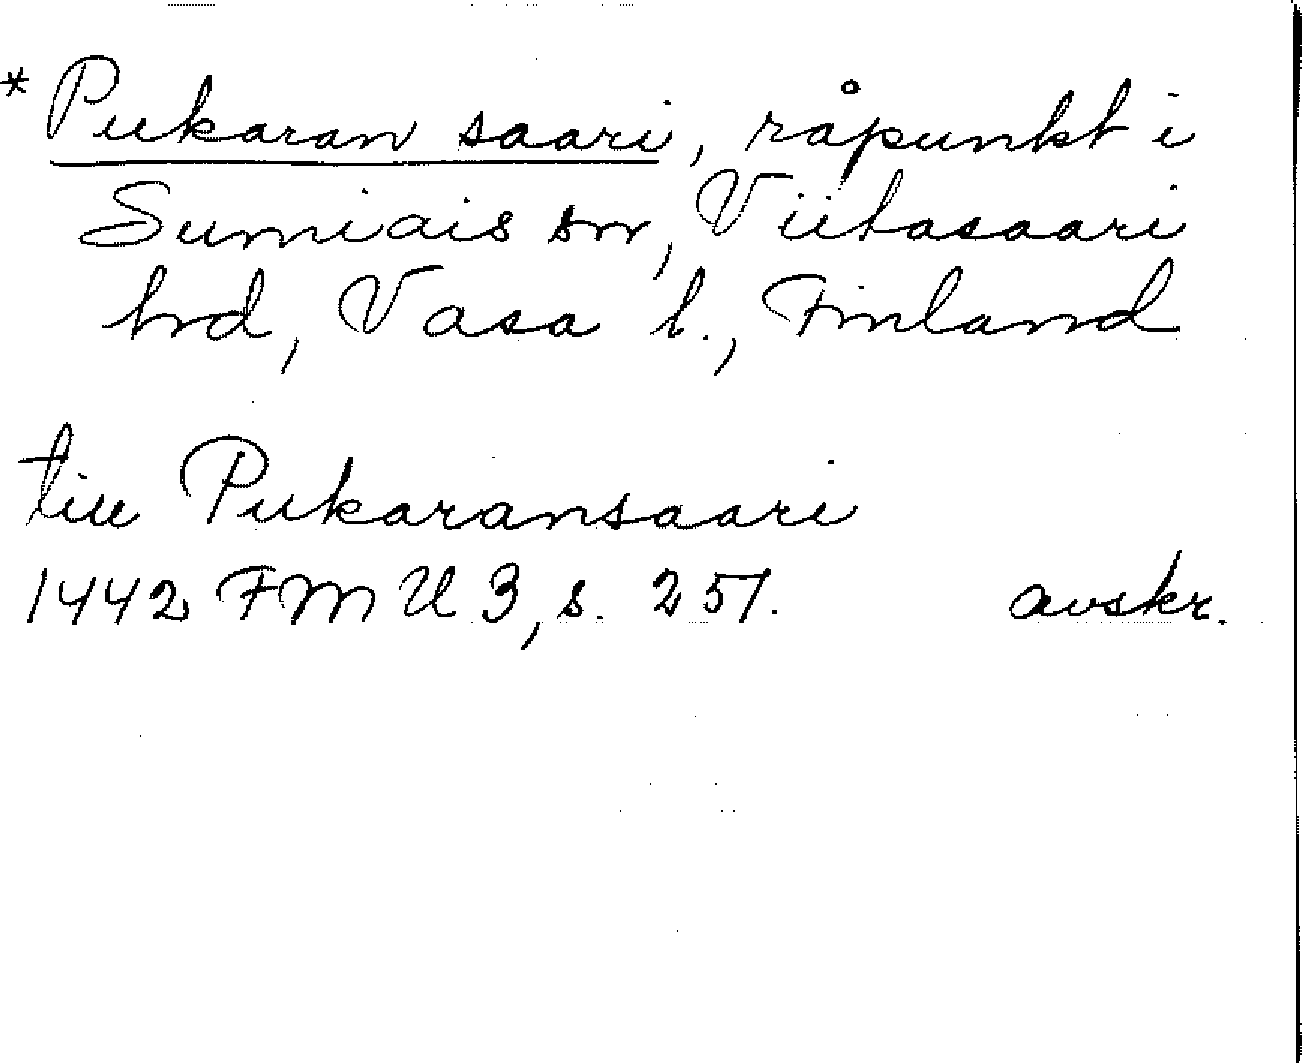 * Pukaran saari, råpunkt i
Sumiais sn, Viitasaari
hrd, Vasa l., Finland
till Pukaransaari
1442 FMU 3, s. 251. avskr.